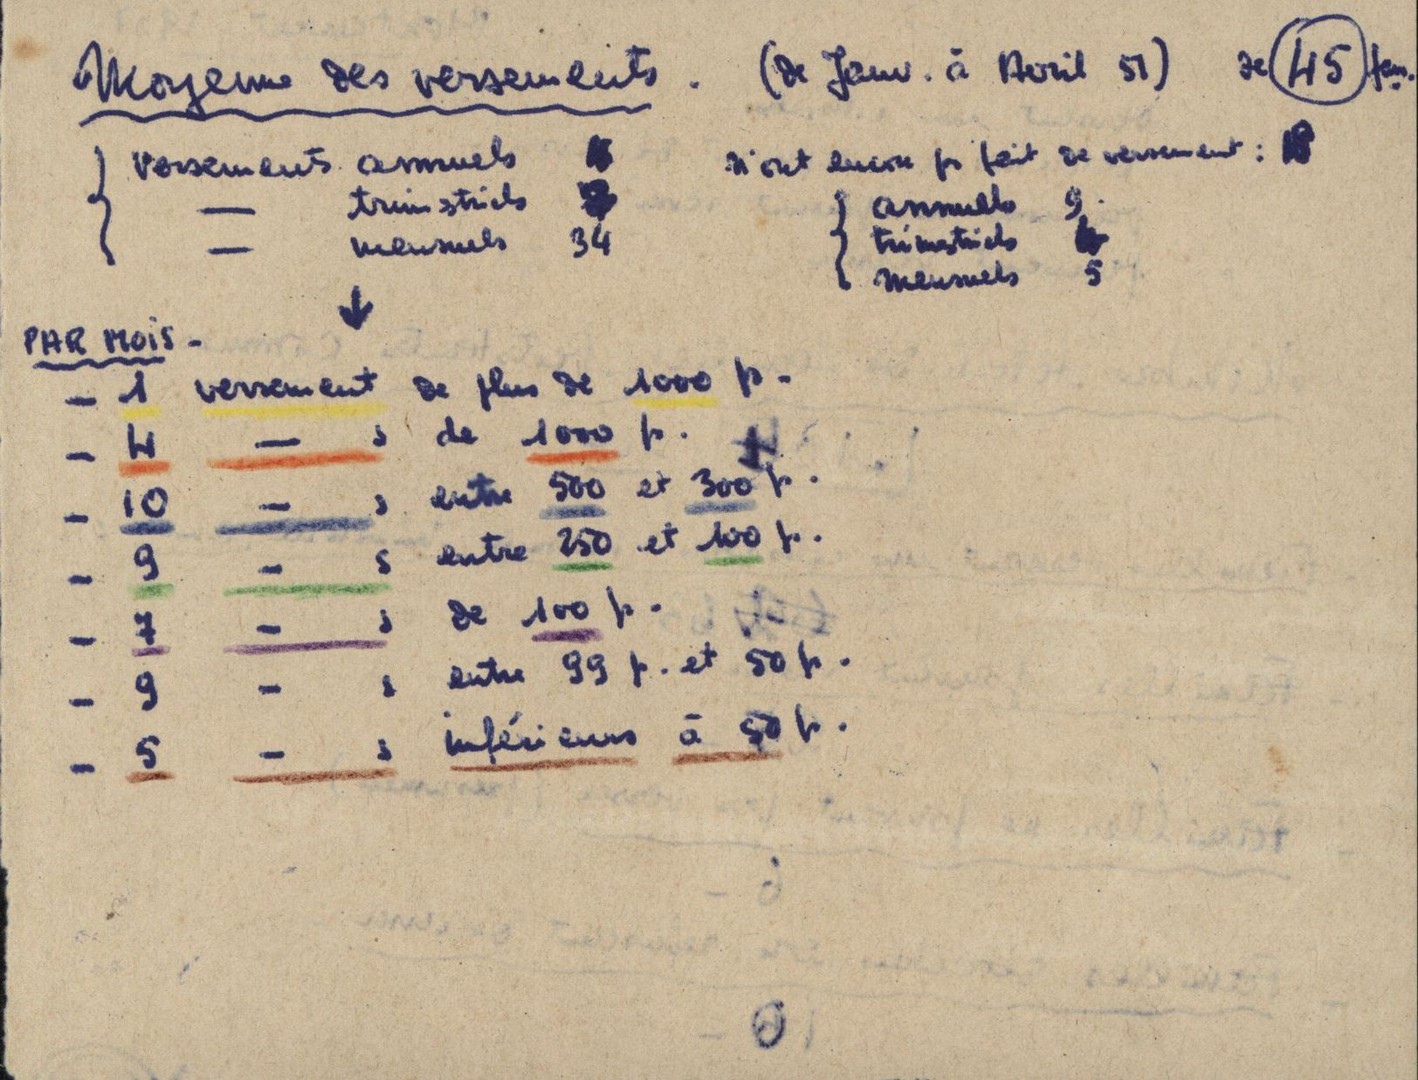 Moyenne des versements. (de Janv. à Avril 51) de 45 fam.
versements annuels
— trimstriels
— mensuels 34
n'ont encore ps fait de versement : 18
annuels 9.
trimestriels
mensuels 5
PAR MOIS -
- 1 versement de plus de 1000 p.
- 4 — s de 1000 p.
- 10 — s entre 500 et 300 p.
- 9 — s entre 250 et 100 p.
- 7 — s de 100 p.
- 9 — s entre 99 p. et 50 p.
- 5 — s inférieurs à 50 p.